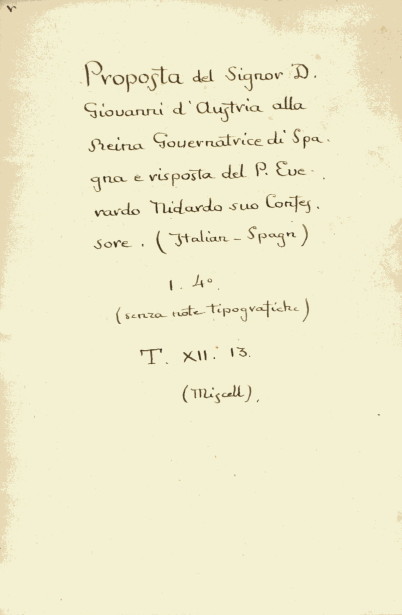 Proposta del Signor D.
Giovanni d'Austria alla
Reina Governatrice di Spa.
gna e risposta del P. Eve.
rardo Nidardo suo Confes.
sore. (Italian - Spagn)
1. 4º.
(senza note tipografiche)
T. XII. 13.
(Miscell).